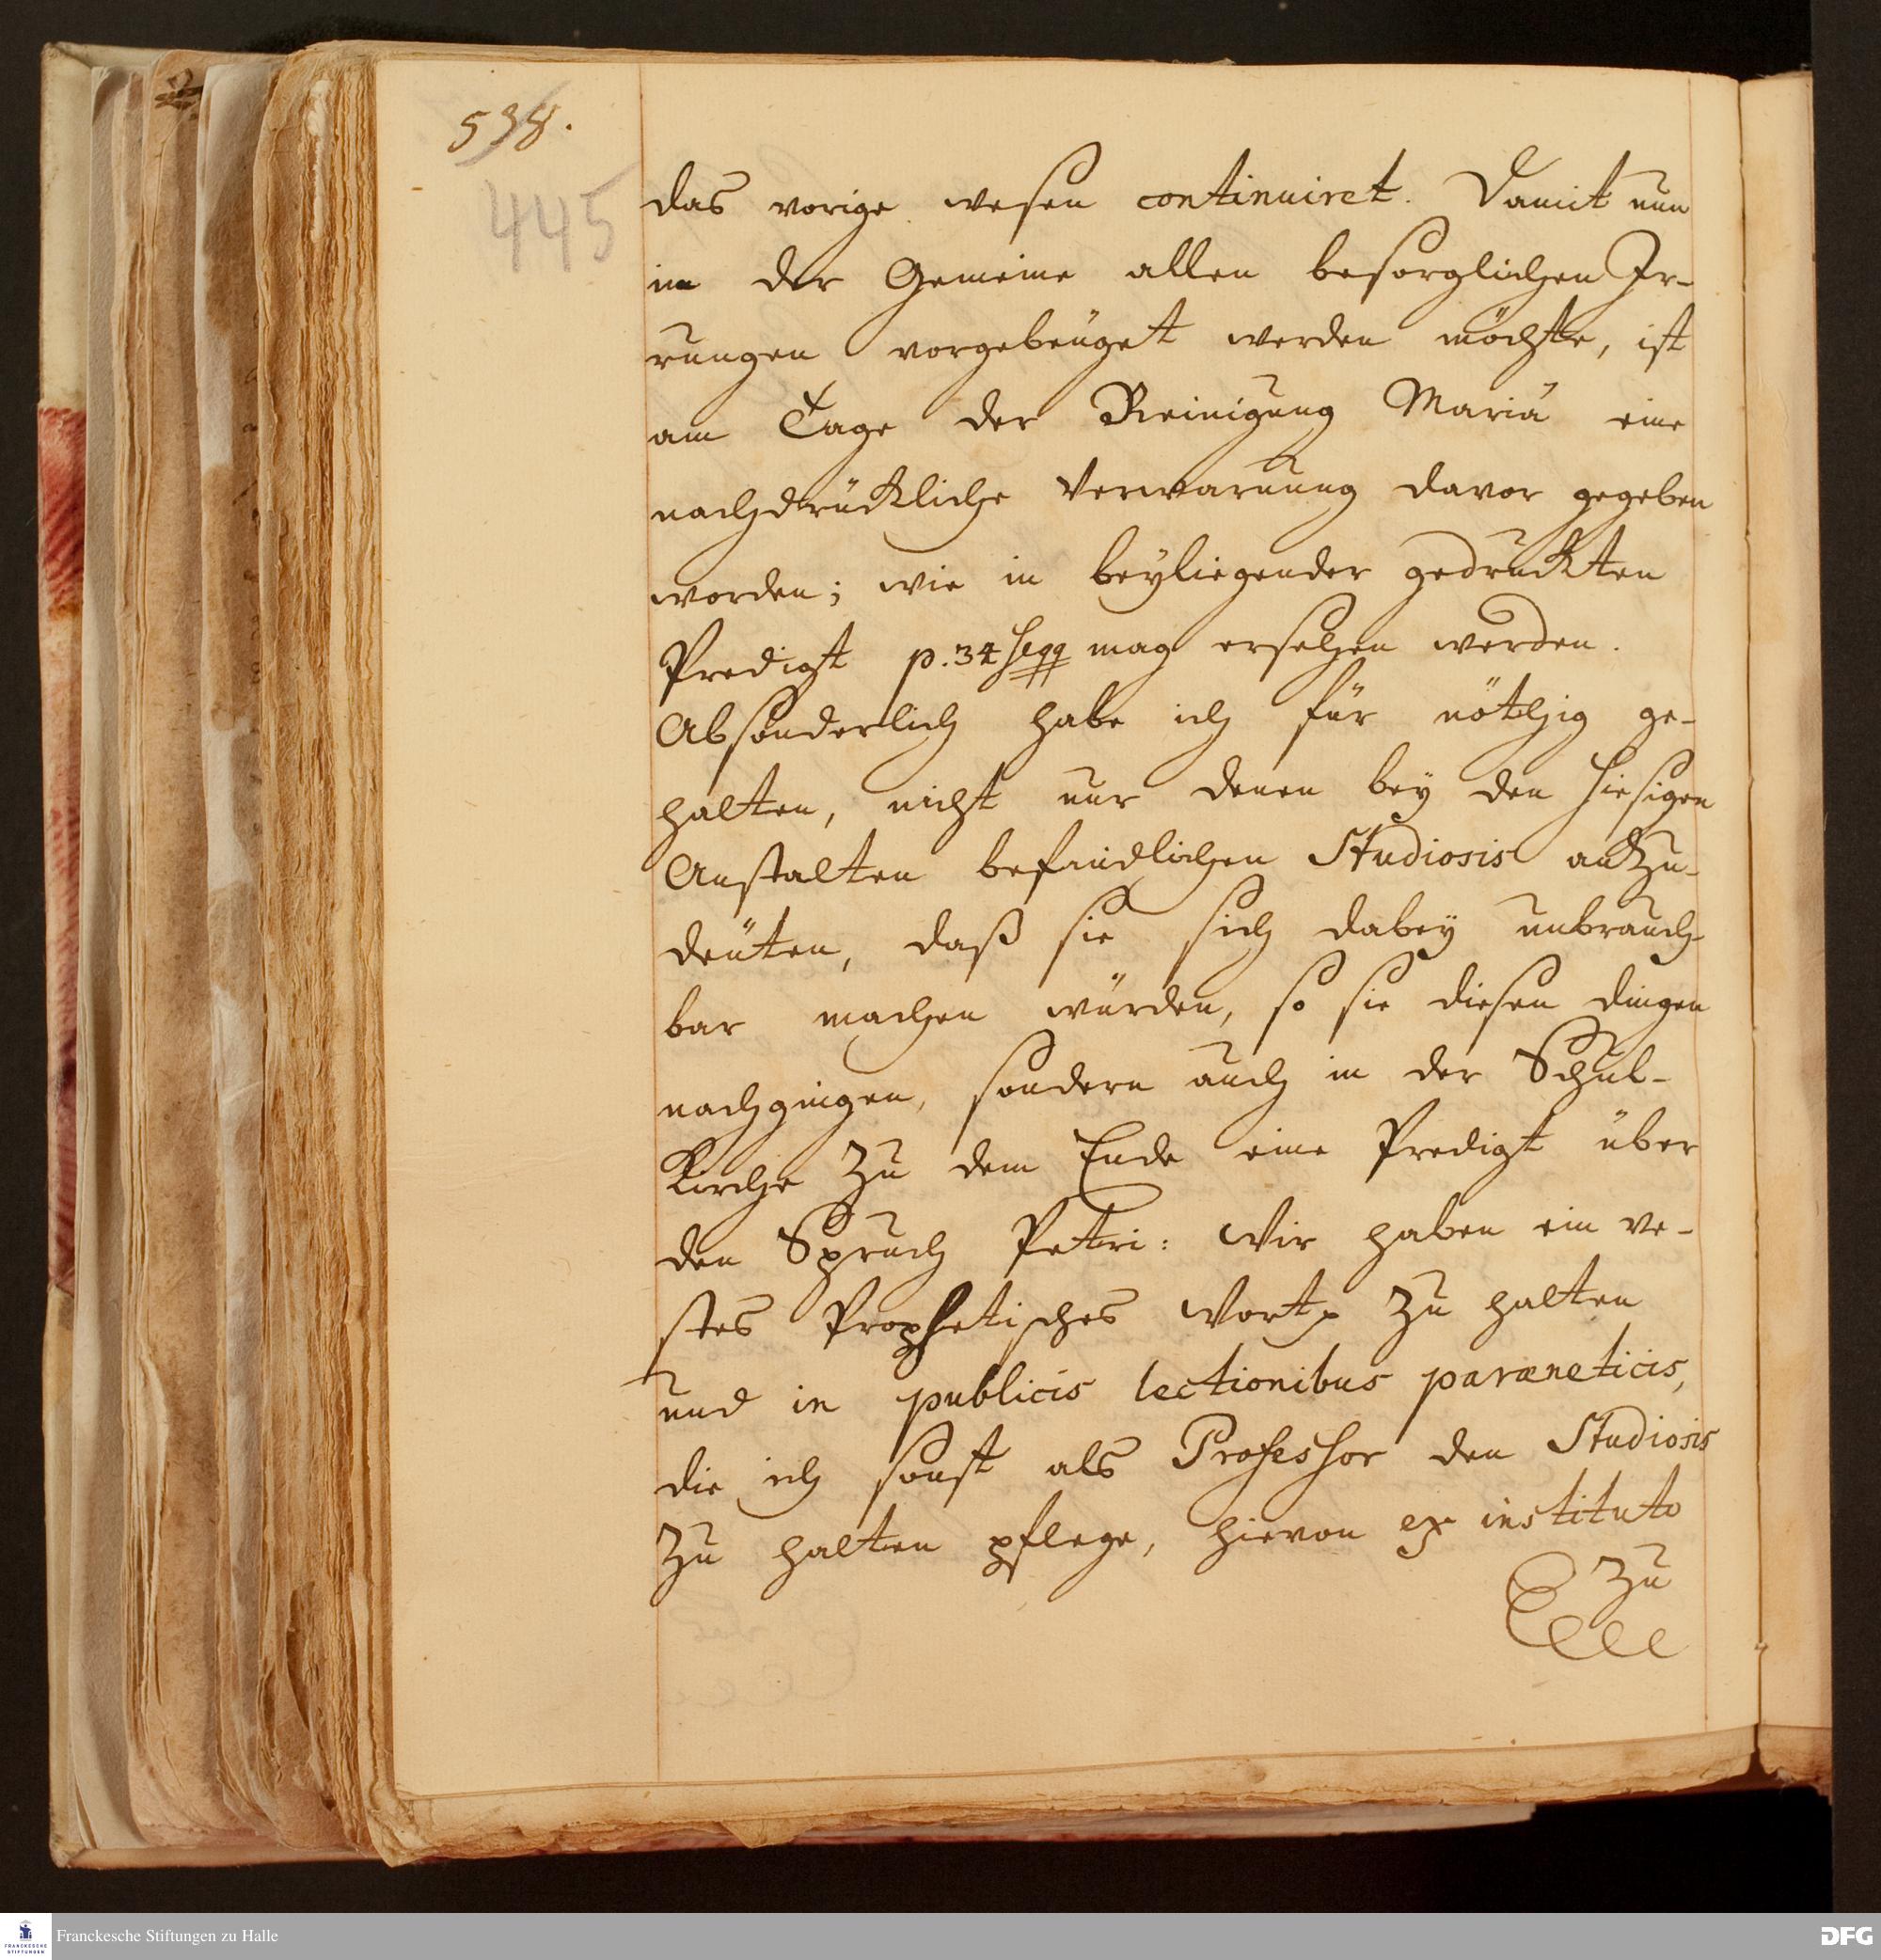 538.
445
das vorige wesen continuiret. Damit nun
in der Gemeine allen besorglichen Ir-
rungen vorgebeüget werden möchte, ist
am Tage der Reinigung Mariä eine
nachdrückliche Verwarnung davor gegeben
worden; wie in beÿliegender gedruckten
Predigt p. 34 seqq mag ersehen werden.
Absonderlich habe ich für nöthig ge-
halten, nicht nur denen beÿ den hiesigen
Anstalten befindlichen Studiosis anzu-
deüten, daß sie sich dabeÿ unbrauch-
bar machen würden, so sie diesen dingen
nachgingen, sondern auch in der Schul-
Kirche zu dem Ende eine Predigt über
den Spruch Petri: Wir haben ein ve-
stes Prophetisches Wort zu halten
und in publicis lectionibus paræneticis,
die ich sonst als Professor den Studiosis
zu halten pflege, hievon ex instituto
zu
Franckesche Stiftungen zu Halle
FRANCKESCHE
STIFTUNGEN
DFG